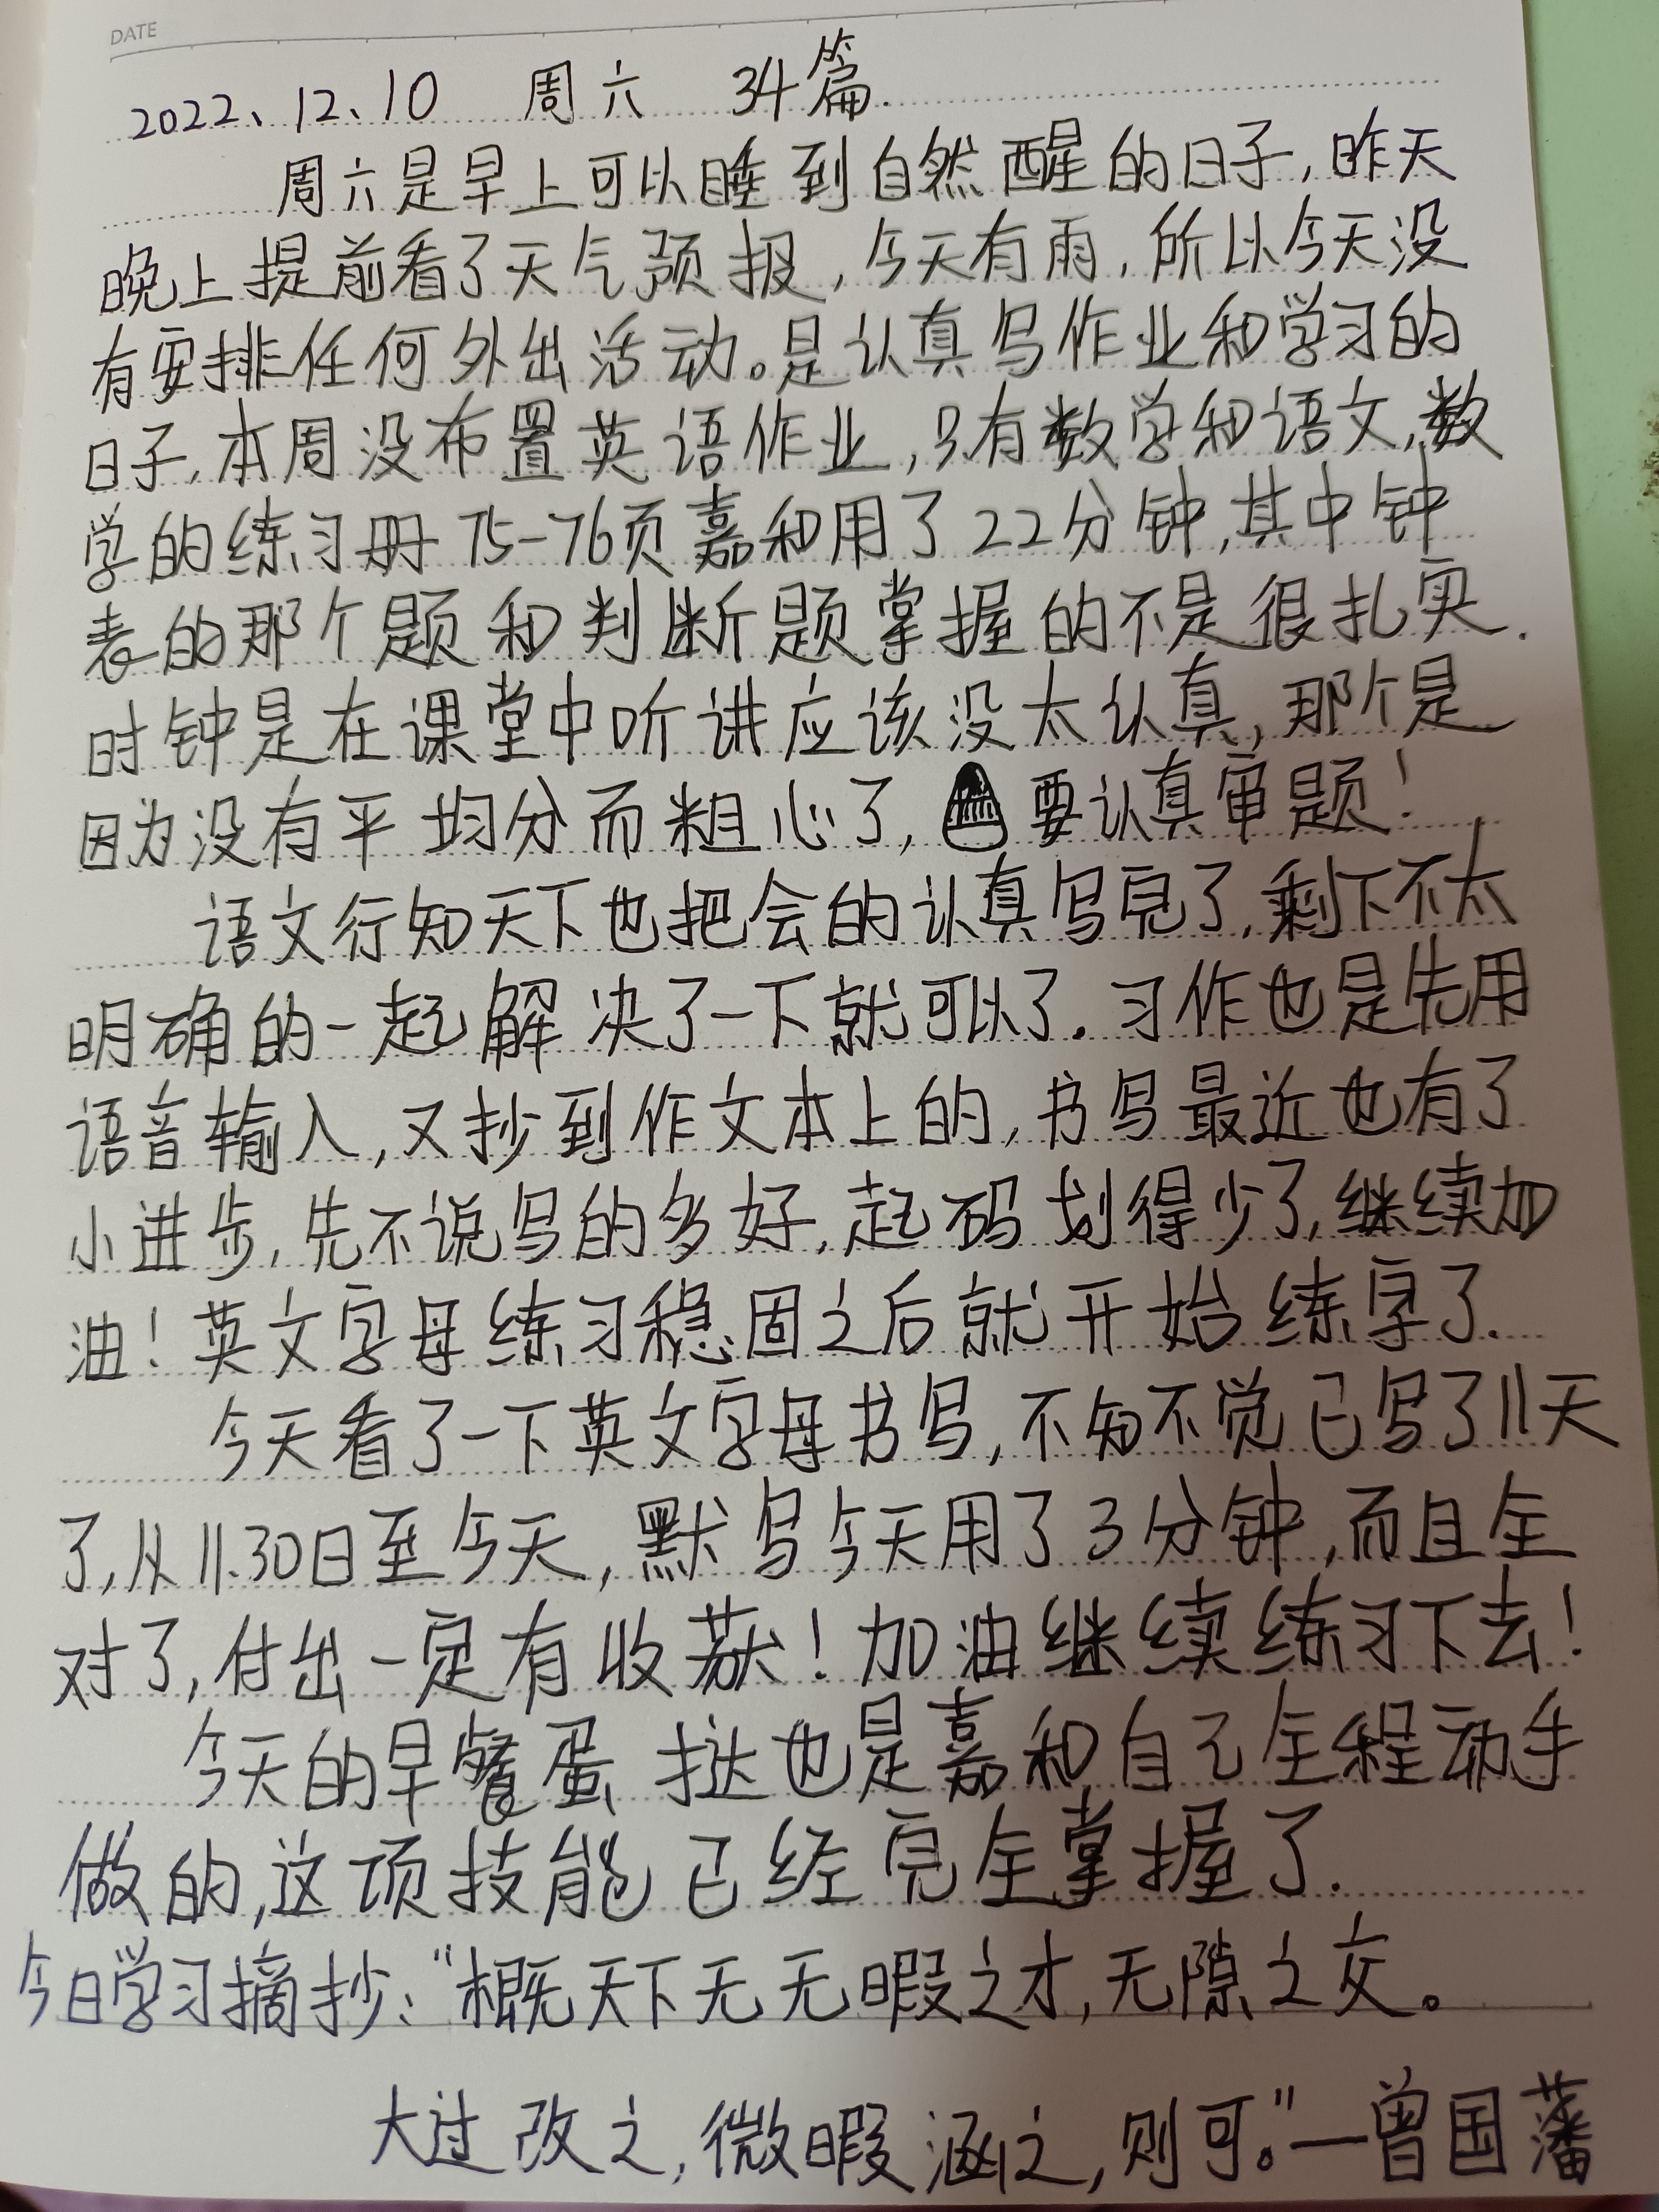 DATE
2022、12、10 周六 34篇.
周六是早上可以睡到自然醒的日子,昨天
晚上提前看了天气预报,今天有雨,所以今天没
有安排任何外出活动。是认真写作业和学习的
日子,本周没布置英语作业,只有数学和语文,数
学的练习册75-76页嘉和用了22分钟,其中钟
表的那个题和判断题掌握的不是很扎实.
时钟是在课堂中听讲应该没太认真,那个是
因为没有平均分而粗心了,要认真审题!
语文行知天下也把会的认真写完了,剩下不太
明确的一起解决了一下就可以了.习作也是先用
语音输入,又抄到作文本上的,书写最近也有了
小进步,先不说写的多好,起码划得少了,继续加
油!英文字母练习稳固之后就开始练字了.
今天看了一下英文字母书写,不知不觉已写了11天
了,从11.30日至今天,默写今天用了3分钟,而且全
对了,付出一定有收获!加油继续练习下去!
今天的早餐蛋挞也是嘉和自己全程动手
做的,这项技能已经完全掌握了.
今日学习摘抄:“概天下无无暇之才,无隙之交。
大过改之,微暇涵之,则可。”—曾国藩